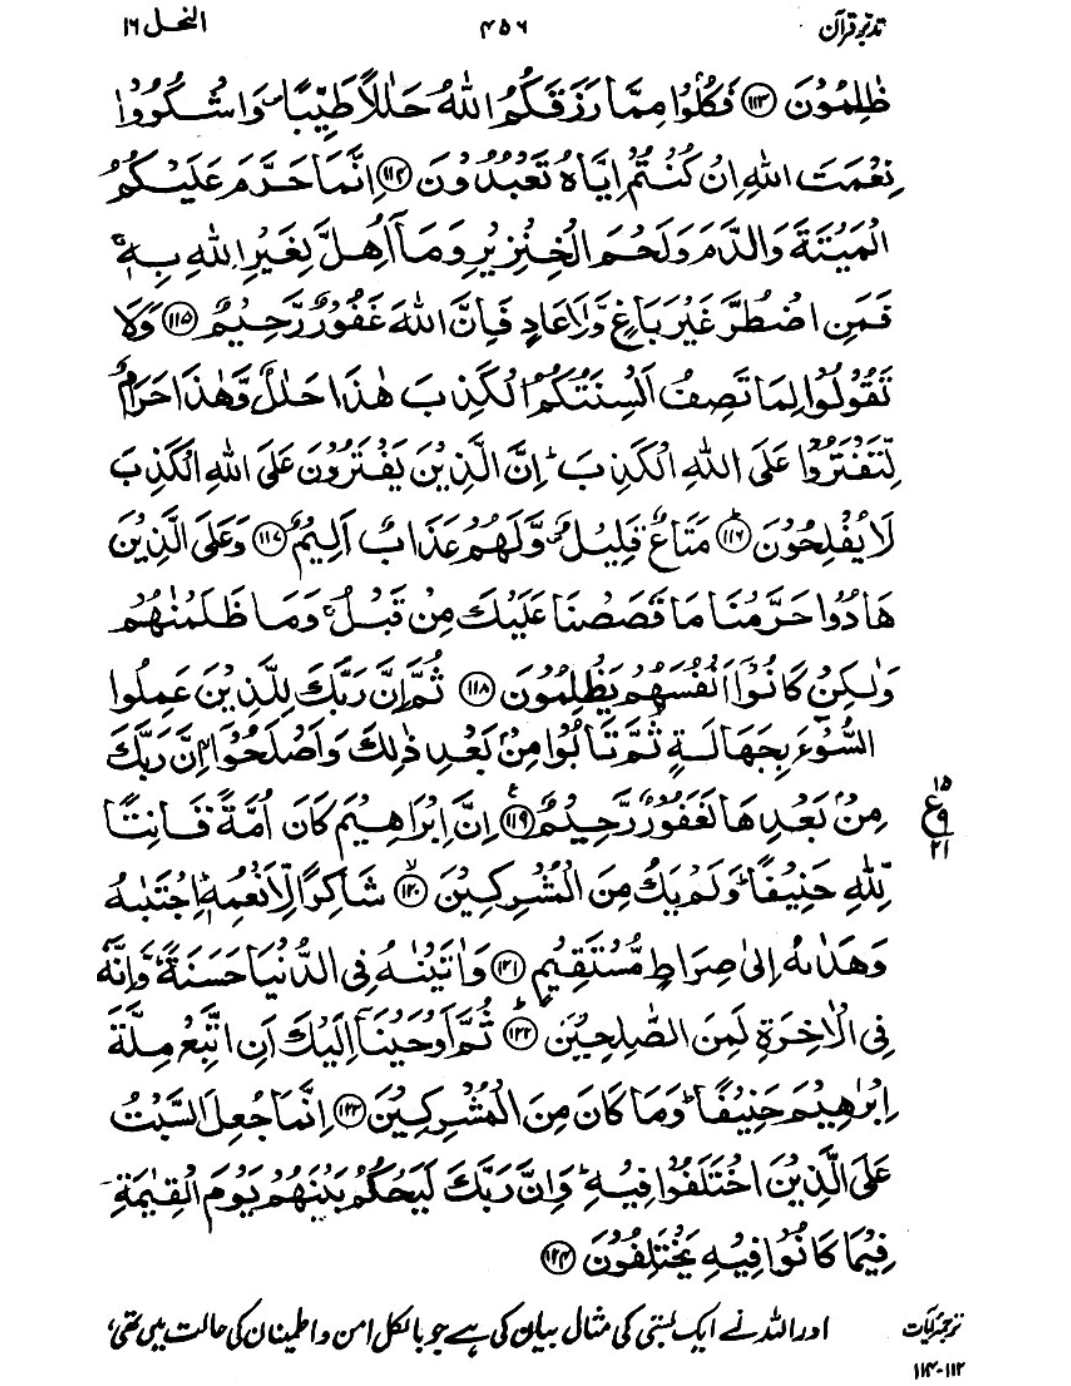 تدبرِ قرآن ۴۵۶ النحل ۱۶
ظٰلِمُوْنَ ﴿۱۱۳﴾ فَكُلُوْا مِمَّا رَزَقَكُمُ اللّٰهُ حَلٰلًا طَيِّبًا ۪ وَّاشْكُرُوْا
نِعْمَتَ اللّٰهِ اِنْ كُنْتُمْ اِيَّاهُ تَعْبُدُوْنَ ﴿۱۱۴﴾ اِنَّمَا حَرَّمَ عَلَيْكُمُ
الْمَيْتَةَ وَالدَّمَ وَلَحْمَ الْخِنْزِيْرِ وَمَآ اُهِلَّ لِغَيْرِ اللّٰهِ بِهٖ ۚ
فَمَنِ اضْطُرَّ غَيْرَ بَاغٍ وَّلَا عَادٍ فَاِنَّ اللّٰهَ غَفُوْرٌ رَّحِيْمٌ ﴿۱۱۵﴾ وَلَا
تَقُوْلُوْا لِمَا تَصِفُ اَلْسِنَتُكُمُ الْكَذِبَ هٰذَا حَلٰلٌ وَّهٰذَا حَرَامٌ
لِّتَفْتَرُوْا عَلَى اللّٰهِ الْكَذِبَ ؕ اِنَّ الَّذِيْنَ يَفْتَرُوْنَ عَلَى اللّٰهِ الْكَذِبَ
لَا يُفْلِحُوْنَ ﴿۱۱۶﴾ؕ مَتَاعٌ قَلِيْلٌ ۪ وَّلَهُمْ عَذَابٌ اَلِيْمٌ ﴿۱۱۷﴾ وَعَلَى الَّذِيْنَ
هَادُوْا حَرَّمْنَا مَا قَصَصْنَا عَلَيْكَ مِنْ قَبْلُ ۚ وَمَا ظَلَمْنٰهُمْ
وَلٰكِنْ كَانُوْٓا اَنْفُسَهُمْ يَظْلِمُوْنَ ﴿۱۱۸﴾ ثُمَّ اِنَّ رَبَّكَ لِلَّذِيْنَ عَمِلُوا
السُّوْٓءَ بِجَهَالَةٍ ثُمَّ تَابُوْا مِنْۢ بَعْدِ ذٰلِكَ وَاَصْلَحُوْٓا ۙ اِنَّ رَبَّكَ
مِنْۢ بَعْدِهَا لَغَفُوْرٌ رَّحِيْمٌ ﴿۱۱۹﴾ اِنَّ اِبْرَاهِيْمَ كَانَ اُمَّةً قَانِتًا
۱۵
ع
۹
۲۱
لِّلّٰهِ حَنِيْفًا ؕ وَلَمْ يَكُ مِنَ الْمُشْرِكِيْنَ ﴿۱۲۰﴾ۙ شَاكِرًا لِّاَنْعُمِهٖ ؕ اِجْتَبٰىهُ
وَهَدٰىهُ اِلٰى صِرَاطٍ مُّسْتَقِيْمٍ ﴿۱۲۱﴾ وَاٰتَيْنٰهُ فِى الدُّنْيَا حَسَنَةً ؕ وَاِنَّهٗ
فِى الْاٰخِرَةِ لَمِنَ الصّٰلِحِيْنَ ﴿۱۲۲﴾ؕ ثُمَّ اَوْحَيْنَآ اِلَيْكَ اَنِ اتَّبِعْ مِلَّةَ
اِبْرٰهِيْمَ حَنِيْفًا ؕ وَمَا كَانَ مِنَ الْمُشْرِكِيْنَ ﴿۱۲۳﴾ اِنَّمَا جُعِلَ السَّبْتُ
عَلَى الَّذِيْنَ اخْتَلَفُوْا فِيْهِ ؕ وَاِنَّ رَبَّكَ لَيَحْكُمُ بَيْنَهُمْ يَوْمَ الْقِيٰمَةِ
فِيْمَا كَانُوْا فِيْهِ يَخْتَلِفُوْنَ ﴿۱۲۴﴾
ترجمۂ آیات اور اللہ نے ایک بستی کی مثال بیان کی ہے جو بالکل امن و اطمینان کی حالت میں تھی،
۱۱۲-۱۱۴